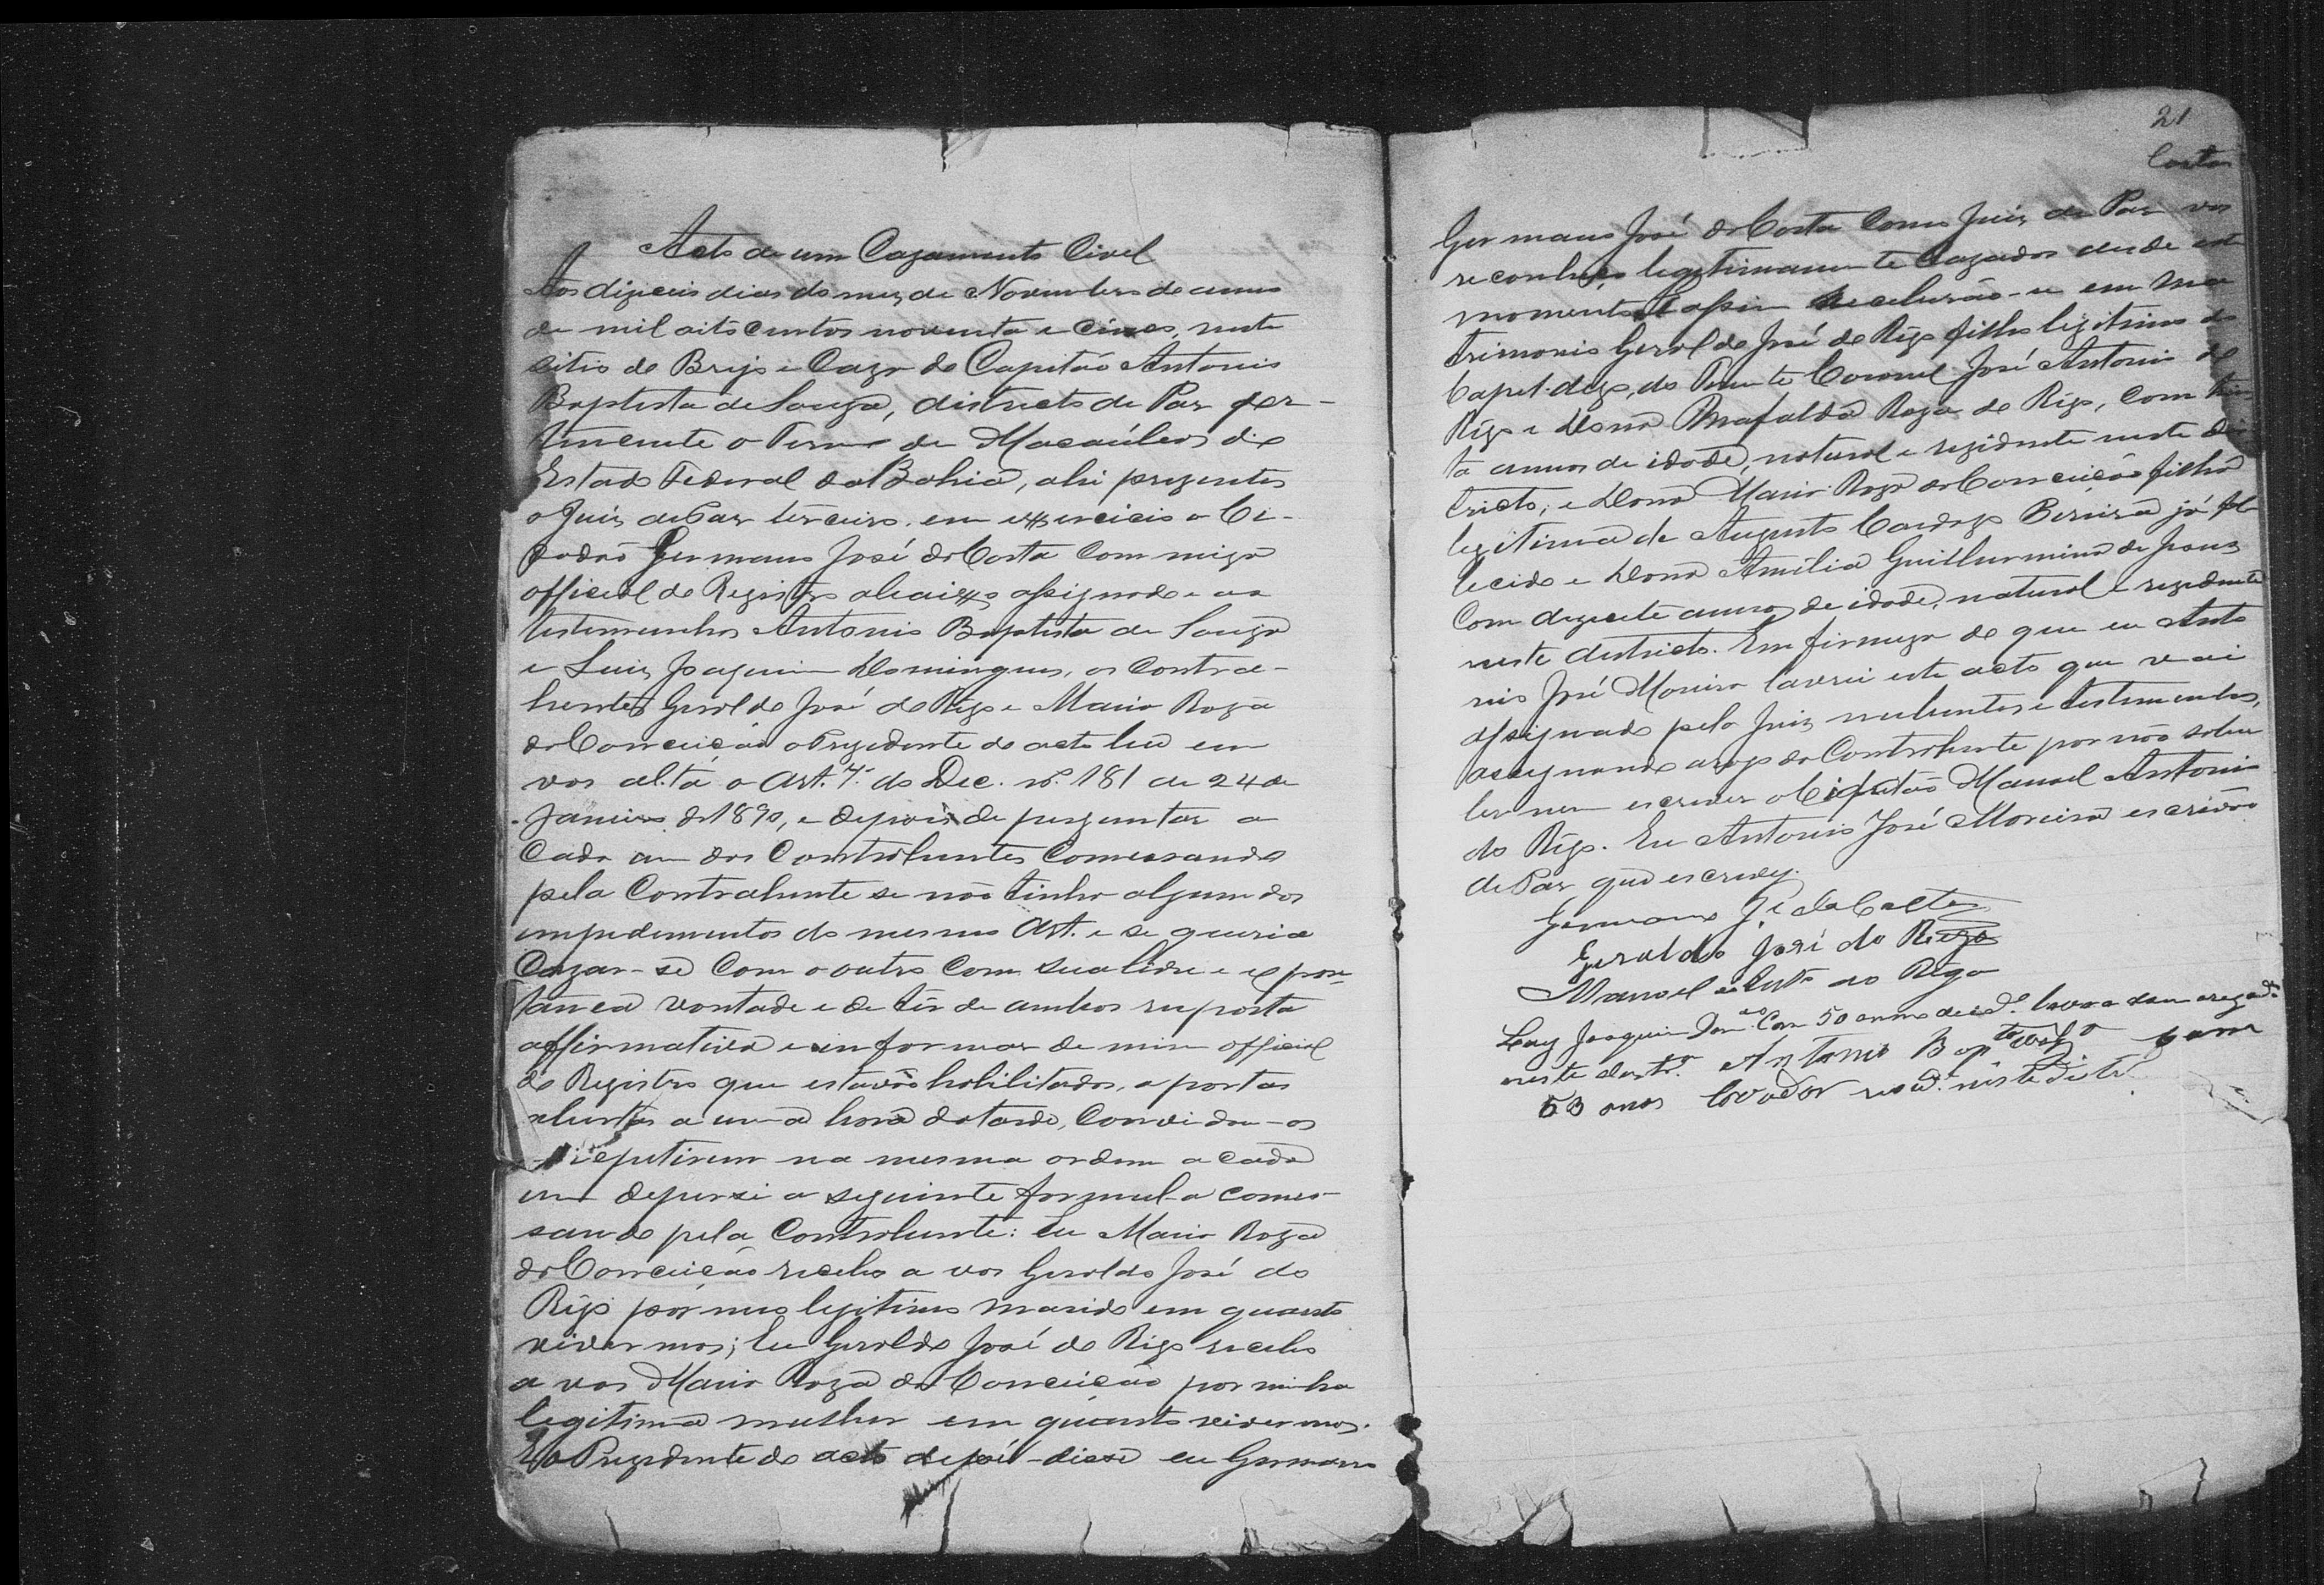 Acto de um Cazamento Civel
Aos dizeceis dias do mez de Novembro de anno
de mil oito centos noventa e cinco, neste
citio do Brejo e Caza do Capitão Antonio
Baptista de Souza, districto de Paz per-
tencente o Termo de Macaúbas do
Estado Federal da Bahia, ahi prezentes
o Juiz de Paz terceiro em exsercicio o Ci-
dadão Germano José da Costa Commigo
official do Registro abaixo assignado e as
testemunhas Antonio Baptista de Souza
e Luiz Joaquim Domingues, os Contra-
hentes Geraldo José do Rêgo e Maria Roza
da Conceição o Prezidente do acto leu em
voz alta o Art. 7º do Dec. nº 181 de 24 de
Janeiro de 1890, e depois de perguntar a
Cada um dos Contrahentes Comessando
pela Contrahente se não tinha algum dos
impedimentos do mesmo Art. e se queria
Cazar-se Com o outro Com sua livre e espon-
tanea vontade e de têr de ambos resposta
affirmativa e informar de mim official
do Registro que estavão habilitados, a portas
abertas a uma hora da tarde, Convidou-os
a repetirem na mesma ordem a cada
um depersi a seguinte formula comes-
sando pela Contrahente: Eu Maria Roza
da Conceição recebo a vos Geraldo José do
Rêgo por meu legitimo marido em quanto
vivermos; Eu Geraldo José do Rêgo recebo
a vos Maria Roza da Conceição por minha
legitima mulher em quanto vivermos.
E o Prezidente do acto depois disse eu Germano
21
Costa
Germano José da Costa Como Juiz de Paz vos
reconheço legitimamente Cazados desde este
momento. E assim receberão-se em ma
trimonio Geraldo José do Rêgo filho legitimo do
Capit. digo, do Tenente Coronel José Antonio do
Rêgo e Dona Mafalda Roza do Rêgo, Com trin
ta annos de idade, natural e rezidente neste Dis
tricto; e Dona Maria Roza da Conceição filha
legitima de Augusto Cardozo Pereira já fa
lecido e Dona Amélia Guilhermina de Jesus
Com dezesete annos de idade, natural e rezidente
neste districto. Em firmeza do que eu Anto
nio José Moreira lavrei este acto que vai
assignado pelo Juiz, nubentes e testemunhas,
assignando arogo da Contrahente por não saber
ler nem escrever o Capitão Manoel Antonio
do Rêgo. Eu Antonio José Moreira escrivão
de Paz que escrevy.
Germano Jé da Costa
Geraldo José do Rego
Manoel Anto do Rêgo
Luiz Joaquim Domos Com 50 annos de ide
neste destrº Antonio Bapta com
53 anos lavador resid. neste Distr.